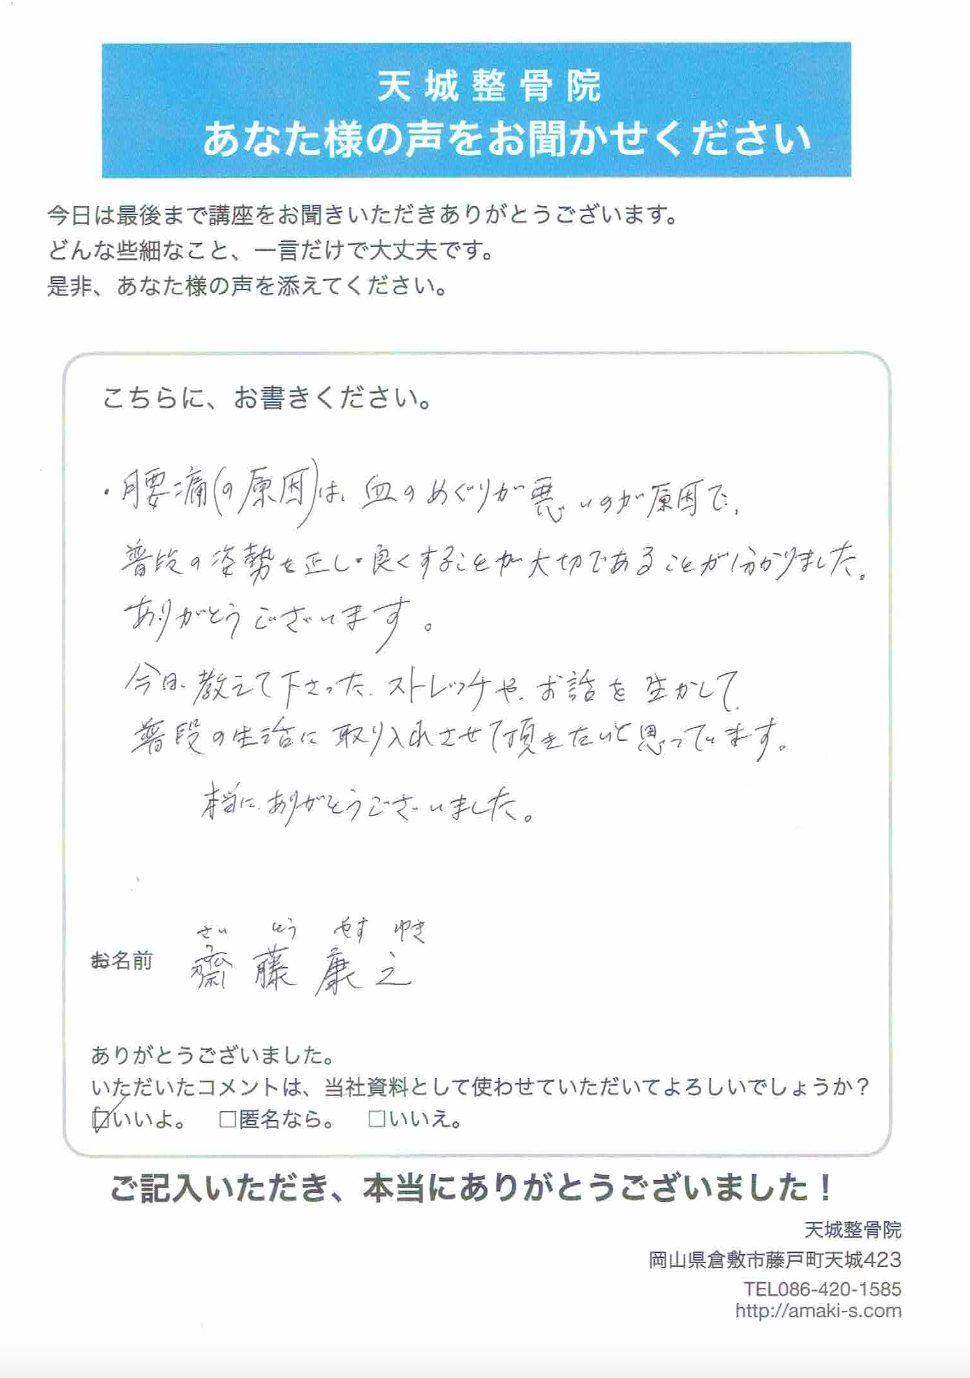 天城整骨院
あなた様の声をお聞かせください
今日は最後まで講座をお聞きいただきありがとうございます。
どんな些細なこと、一言だけで大丈夫です。
是非、あなた様の声を添えてください。
こちらに、お書きください。
・腰痛(の原因)は、血のめぐりが悪いのが原因で、
普段の姿勢を正し・良くすることが大切であることが分かりました。
ありがとうございます。
今日、教えて下さった、ストレッチや、お話を生かして、
普段の生活に取り入れさせて頂きたいと思っています。
本当に、ありがとうございました。
さい とう やす ゆき
お名前 齋藤康之
ありがとうございました。
いただいたコメントは、当社資料として使わせていただいてよろしいでしょうか?
☑いいよ。 □匿名なら。 □いいえ。
ご記入いただき、本当にありがとうございました!
天城整骨院
岡山県倉敷市藤戸町天城423
TEL086-420-1585
http://amaki-s.com